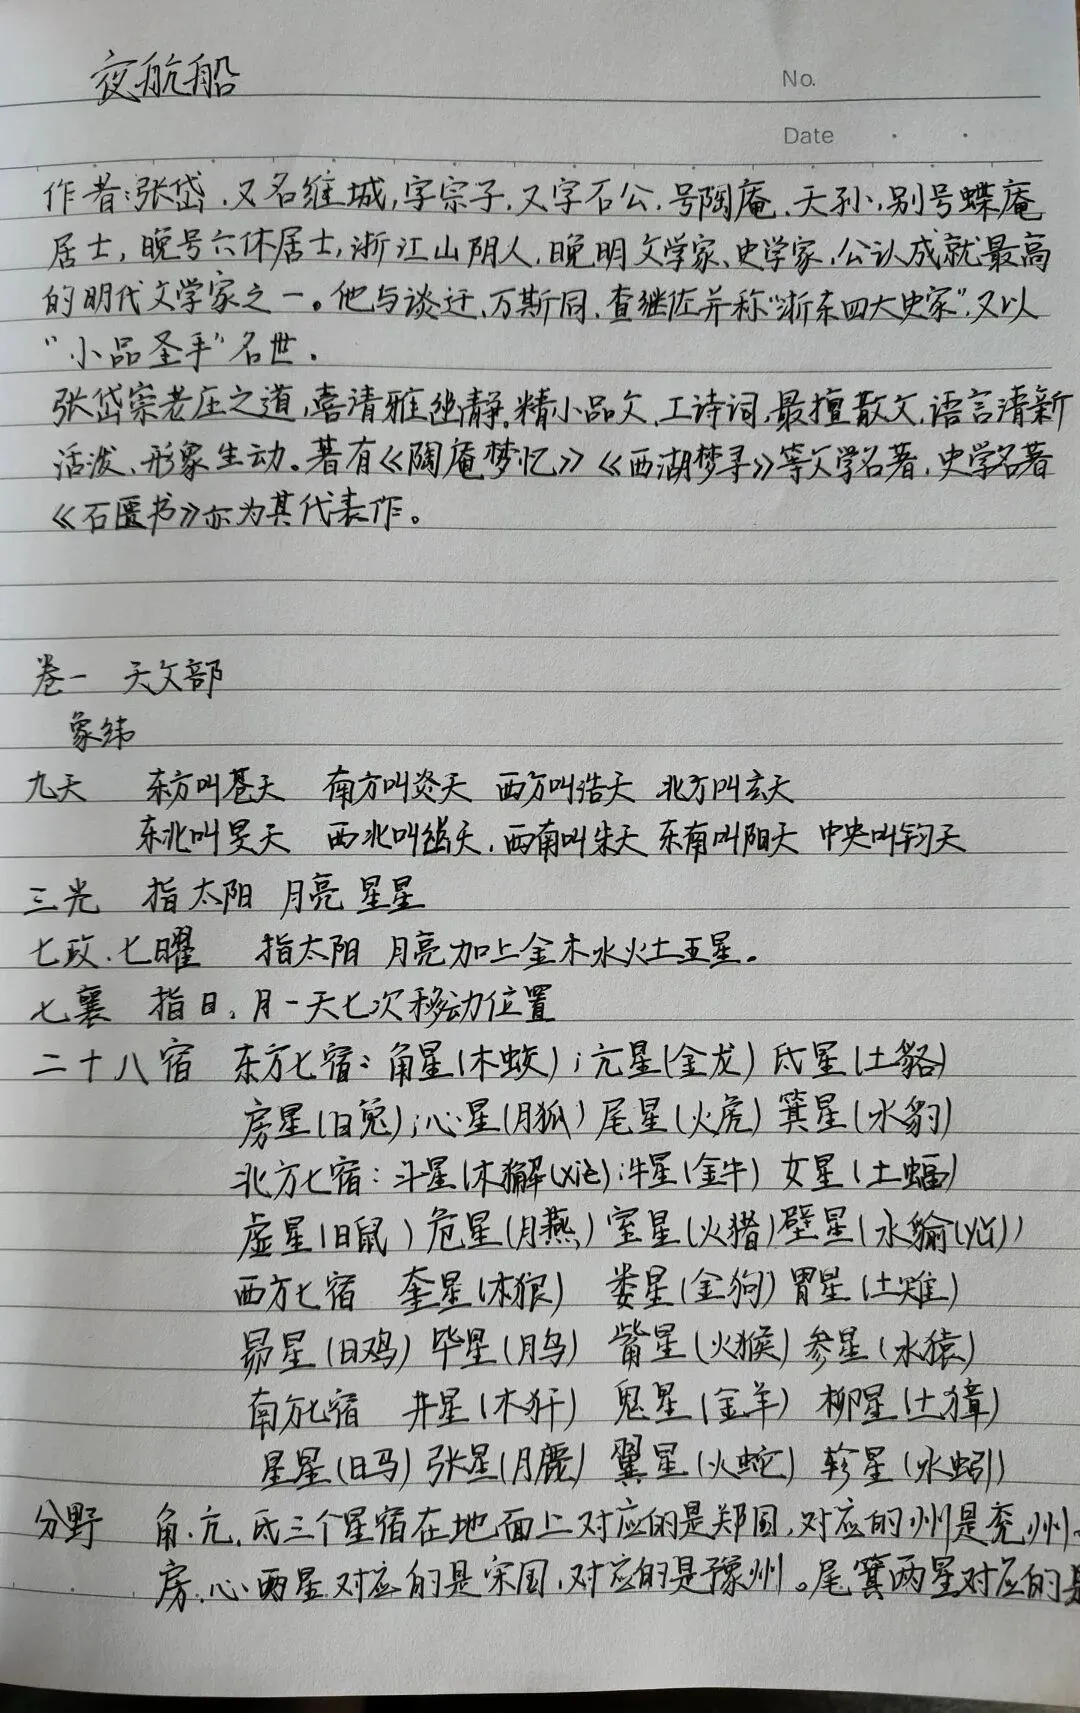 夜航船
No.
Date
作者:张岱，又名维城,字宗子,又字石公,号陶庵、天孙,别号蝶庵
居士,晚号六休居士,浙江山阴人,晚明文学家、史学家,公认成就最高
的明代文学家之一。他与谈迁、万斯同、查继佐并称"浙东四大史家",又以
"小品圣手"名世.
张岱崇老庄之道,喜清雅幽静.精小品文、工诗词,最擅散文,语言清新
活泼、形象生动。著有《陶庵梦忆》《西湖梦寻》等文学名著,史学名著
《石匮书》亦为其代表作。
卷一 天文部
象纬
九天 东方叫苍天 南方叫炎天 西方叫浩天 北方叫玄天
东北叫旻天 西北叫幽天,西南叫朱天 东南叫阳天 中央叫钧天
三光 指太阳 月亮 星星
七政、七曜 指太阳 月亮加上金木水火土五星。
七襄 指日、月一天七次移动位置
二十八宿 东方七宿:角星(木蛟);亢星(金龙) 氐星(土貉)
房星(日兔);心星(月狐) 尾星(火虎) 箕星(水豹)
北方七宿:斗星(木獬(xiè);牛星(金牛) 女星(土蝠)
虚星(日鼠) 危星(月燕) 室星(火猪)壁星(水貐(yǔ))
西方七宿 奎星(木狼) 娄星(金狗) 胃星(土雉)
昴星(日鸡) 毕星(月乌) 觜星(火猴) 参星(水猿)
南方七宿 井星(木犴) 鬼星(金羊) 柳星(土獐)
星星(日马) 张星(月鹿) 翼星(火蛇) 轸星(水蚓)
分野 角、亢、氐三个星宿在地面上对应的是郑国,对应的州是兖州、
房、心两星对应的是宋国,对应的是豫州。尾箕两星对应的是